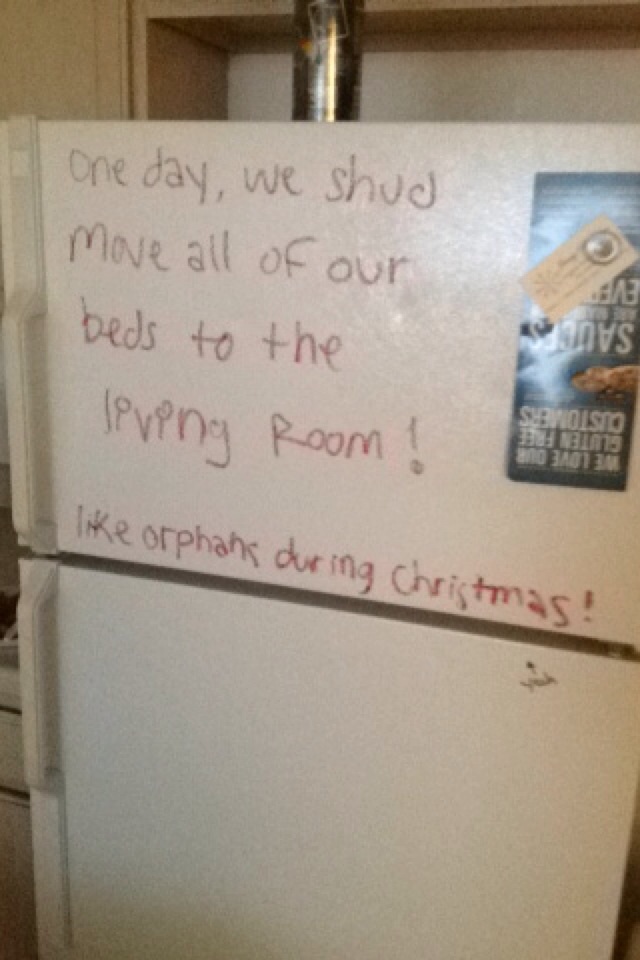 One day, we shud
move all of our
beds to the
living Room!
like orphans during Christmas!
WE LOVE OUR
GLUTEN FREE
CUSTOMERS
SAUCES
ARE
EVER